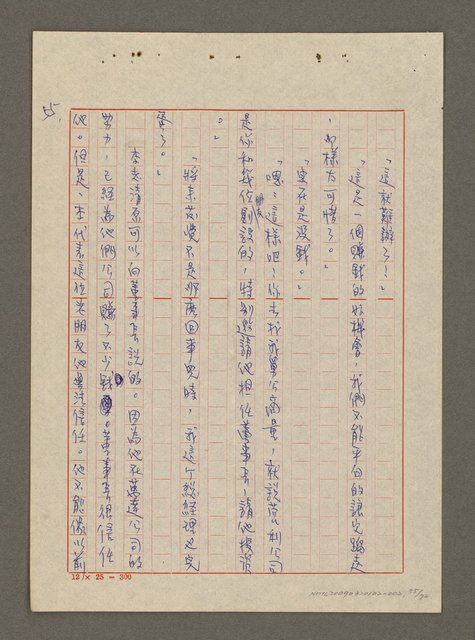 「這就難辦了！」
「這是一個賺錢的好機會，我們不能平白的讓它跑走
，那樣太可惜了。」
「實在是沒錢。」
「嗯，這樣吧！你去找我舅公商量，就說荷八利公司
是你和我倆朋友創設的，特別邀請他担任董事長，請他投資
。」
「將來發覺不是那麼回事兒時，我這个總經理也完
蛋了。」
李志清原可以向董事長説的。因為他在萬達公司的
努力，已經為他們公司賺了不少錢。董事長很信任
他。但是，李代表這位老朋友他無法信任。他不能像以前
5.
12 × 25 = 300